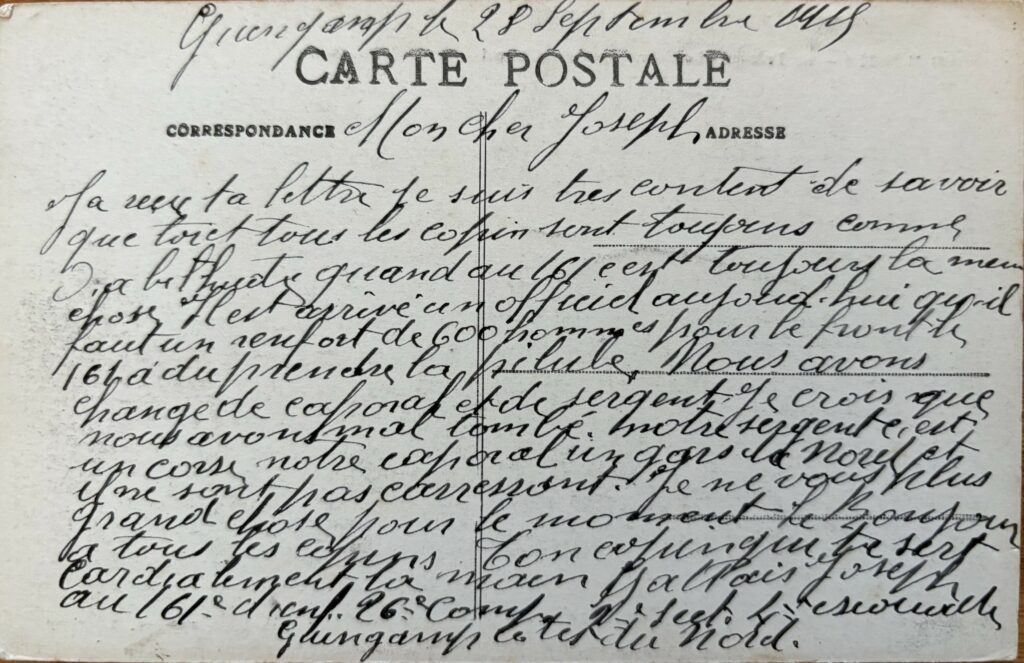 Guingamp le 28 Septembre 1915
CARTE POSTALE
CORRESPONDANCE Mon cher Joseph, ADRESSE
Ja reçu ta lettre je suis tres content de savoir
que tout tous les copin sont toujours comme
a quand au 161 c'est toujours la meme
chose, Il est arrivé un officiel aujourd-hui qu-il
faut un renfort de 600 hommes pour le front le
161 a du prendre la pilule, Nous avons
change de caporal et de sergent. Je crois que
nous avons mal tombé. notre sergent, est
un corse notre caporal un gars du Nord et
il ne sont pas carressant. Je ne vous plus
grand chose pour le moment le bonjour
a tous les copins. Ton copin qui te sert
Cardialement la main Joseph
au 161e d'inf. 26e Comp. 2e Sect. escouade
Guingamp Cotes du Nord.